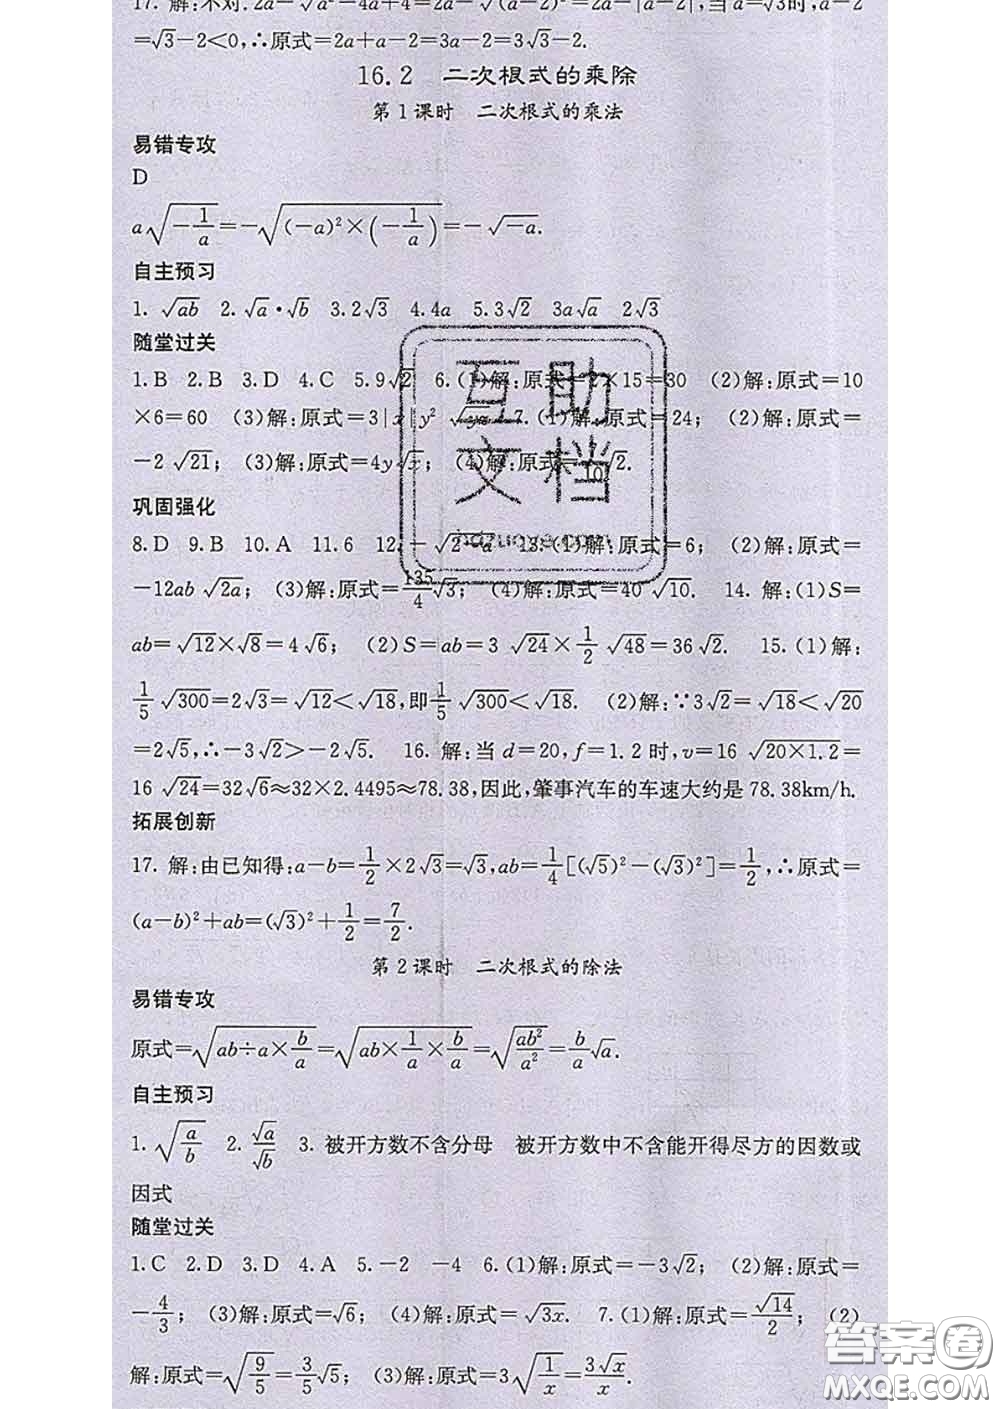 17. 解:不对.2a-√(a²-4a+4)=2a-√((a-2)²)=2a-|a-2|,当a=√3时,a-2
=√3-2<0,∴原式=2a+a-2=3a-2=3√3-2.
16.2 二次根式的乘除
第1课时 二次根式的乘法
易错专攻
D
a√(-1/a)=-√((-a)²×(-1/a))=-√(-a).
自主预习
1. √(ab) 2. √a·√b 3.2√3 4.4a 5.3√2 3a√a 2√3
随堂过关
1.B 2.B 3.D 4.C 5.9√2 6.(1)解:原式=2×15=30 (2)解:原式=10
×6=60 (3)解:原式=3|x|y² 7.(1)解:原式=24; (2)解:原式=
-2√21; (3)解:原式=4y√x; (4)解:原式=
巩固强化
8.D 9.B 10.A 11.6 12.-√(2-a) 13.(1)解:原式=6; (2)解:原式=
-12ab√(2a); (3)解:原式=135/4√3; (4)解:原式=40√10. 14. 解:(1)S=
ab=√12×√8=4√6; (2)S=ab=3√24×1/2√48=36√2. 15.(1)解:
1/5√300=2√3=√12<√18,即1/5√300<√18. (2)解:∵3√2=√18<√20
=2√5,∴-3√2>-2√5. 16. 解:当d=20,f=1.2时,v=16√(20×1.2)=
16√24=32√6≈32×2.4495≈78.38,因此,肇事汽车的车速大约是78.38km/h.
拓展创新
17. 解:由已知得:a-b=1/2×2√3=√3,ab=1/4[(√5)²-(√3)²]=1/2,∴原式=
(a-b)²+ab=(√3)²+1/2=7/2.
第2课时 二次根式的除法
易错专攻
原式=√(ab÷a×b/a)=√(ab×1/a×b/a)=√(ab²/a²)=b/a√a.
自主预习
1. √(a/b) 2. √a/√b 3. 被开方数不含分母 被开方数中不含能开得尽方的因数或
因式
随堂过关
1.C 2.D 3.D 4.A 5.-2 -4 6.(1)解:原式=-3√2; (2)解:原式=
-4/3; (3)解:原式=√6; (4)解:原式=√(3x). 7.(1)解:原式=√14/2; (2)
解:原式=√(9/5)=3/5√5; (3)解:原式=3√(1/x)=3√x/x.
互助
文档
hdzuoye.com
答案圈
MXQE.COM